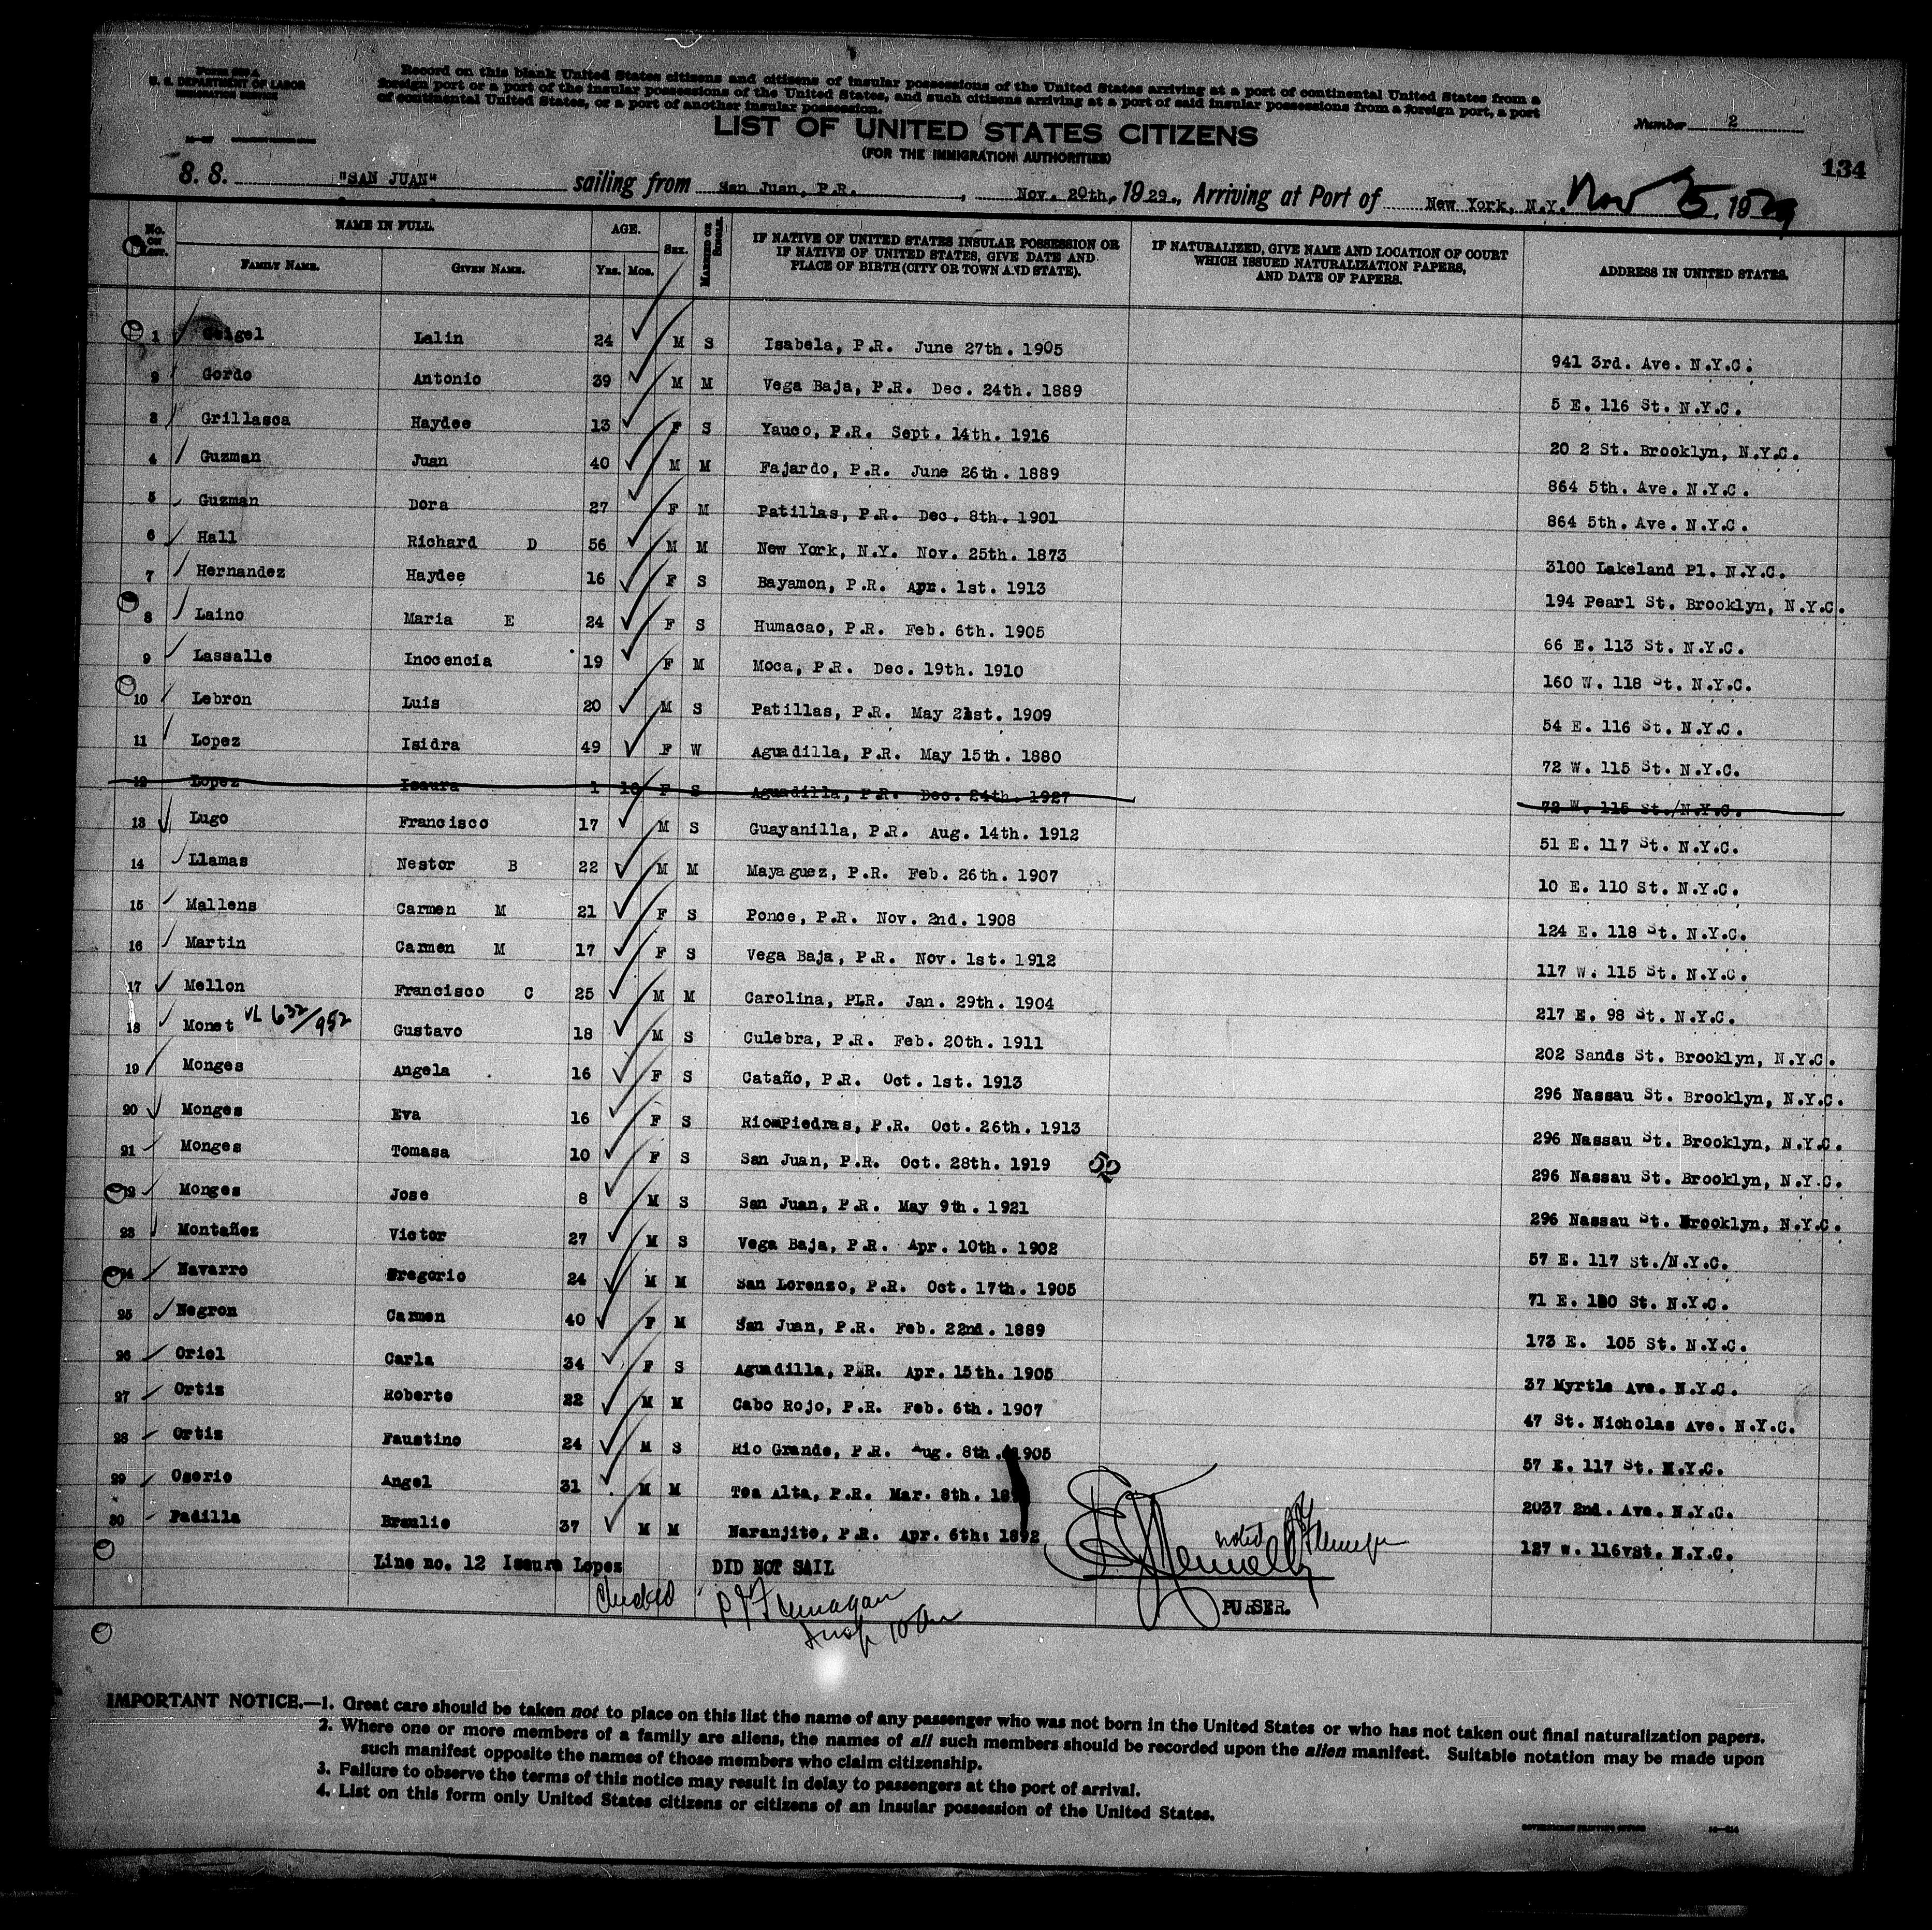 U. S. DEPARTMENT OF LABOR
IMMIGRATION SERVICE
Record on this blank United States citizens and citizens of insular possessions of the United States arriving at a port of continental United States from a
foreign port or a port of the insular possessions of the United States, and such citizens arriving at a port of said insular possessions from a foreign port, a port
of continental United States, or a port of another insular possession.
LIST OF UNITED STATES CITIZENS
(FOR THE IMMIGRATION AUTHORITIES)
Number 2
134
S. S. "SAN JUAN" sailing from San Juan, P.R. , Nov. 20th, 1929., Arriving at Port of New York, N.Y. Nov 25, 1929
No. ON LIST. NAME IN FULL. AGE. SEX. MARRIED OR SINGLE. IF NATIVE OF UNITED STATES INSULAR POSSESSION OR IF NATIVE OF UNITED STATES, GIVE DATE AND PLACE OF BIRTH (CITY OR TOWN AND STATE). IF NATURALIZED, GIVE NAME AND LOCATION OF COURT WHICH ISSUED NATURALIZATION PAPERS, AND DATE OF PAPERS. ADDRESS IN UNITED STATES.
FAMILY NAME. GIVEN NAME. Yrs. Mos.
1 Geigel Lalin 24 M S Isabela, P.R. June 27th. 1905 941 3rd. Ave. N.Y.C.
2 Gordo Antonio 39 M M Vega Baja, P.R. Dec. 24th. 1889 5 E. 116 St. N.Y.C.
3 Grillasca Haydee 13 F S Yauco, P.R. Sept. 14th. 1916 20 2 St. Brooklyn, N.Y.C.
4 Guzman Juan 40 M M Fajardo, P.R. June 26th. 1889 864 5th. Ave. N.Y.C.
5 Guzman Dora 27 F M Patillas, P.R. Dec. 8th. 1901 864 5th. Ave. N.Y.C.
6 Hall Richard D 56 M M New York, N.Y. Nov. 25th. 1873 3100 Lakeland Pl. N.Y.C.
7 Hernandez Haydee 16 F S Bayamon, P.R. Apr. 1st. 1913 194 Pearl St. Brooklyn, N.Y.C.
8 Laino Maria E 24 F S Humacao, P.R. Feb. 6th. 1905 66 E. 113 St. N.Y.C.
9 Lassalle Inocencia 19 F M Moca, P.R. Dec. 19th. 1910 160 W. 118 St. N.Y.C.
10 Lebron Luis 20 M S Patillas, P.R. May 21st. 1909 54 E. 116 St. N.Y.C.
11 Lopez Isidra 49 F W Aguadilla, P.R. May 15th. 1880 72 W. 115 St. N.Y.C.
12 Lopez Isaura 1 10 F S Aguadilla, P.R. Dec. 24th. 1927 72 W. 115 St./N.Y.C.
13 Lugo Francisco 17 M S Guayanilla, P.R. Aug. 14th. 1912 51 E. 117 St. N.Y.C.
14 Llamas Nestor B 22 M M Mayaguez, P.R. Feb. 26th. 1907 10 E. 110 St. N.Y.C.
15 Mallens Carmen M 21 F S Ponce, P.R. Nov. 2nd. 1908 124 E. 118 St. N.Y.C.
16 Martin Carmen M 17 F S Vega Baja, P.R. Nov. 1st. 1912 117 W. 115 St. N.Y.C.
17 Mellon Francisco C 25 M M Carolina, PLR. Jan. 29th. 1904 217 E. 98 St. N.Y.C.
18 Monet VL 632/952 Gustavo 18 M S Culebra, P.R. Feb. 20th. 1911 202 Sands St. Brooklyn, N.Y.C.
19 Monges Angela 16 F S Cataño, P.R. Oct. 1st. 1913 296 Nassau St. Brooklyn, N.Y.C.
20 Monges Eva 16 F S RiomPiedras, P.R. Oct. 26th. 1913 296 Nassau St. Brooklyn, N.Y.C.
21 Monges Tomasa 10 F S San Juan, P.R. Oct. 28th. 1919 52 296 Nassau St. Brooklyn, N.Y.C.
22 Monges Jose 8 M S San Juan, P.R. May 9th. 1921 296 Nassau St. Brooklyn, N.Y.C.
23 Montañez Victor 27 M S Vega Baja, P.R. Apr. 10th. 1902 57 E. 117 St./N.Y.C.
24 Navarro Gregorio 24 M M San Lorenzo, P.R. Oct. 17th. 1905 71 E. 120 St. N.Y.C.
25 Negron Carmen 40 F M San Juan, P.R. Feb. 22nd. 1889 173 E. 105 St. N.Y.C.
26 Oriol Carla 34 F S Aguadilla, P.R. Apr. 15th. 1905 37 Myrtle Ave. N.Y.C.
27 Ortiz Roberto 22 M M Cabo Rojo, P.R. Feb. 6th. 1907 47 St. Nicholas Ave. N.Y.C.
28 Ortiz Faustino 24 M S Rio Grande, P.R. Aug. 8th. 1905 57 E. 117 St. N.Y.C.
29 Osorio Angel 31 M M Toa Alta, P.R. Mar. 8th. 2037 2nd. Ave. N.Y.C.
30 Padilla Braulio 37 M M Naranjito, P.R. Apr. 6th. 1892 127 W. 116 St. N.Y.C.
Line no. 12 Isaura Lopez DID NOT SAIL
noted
Checked
PURSER.
IMPORTANT NOTICE.—1. Great care should be taken not to place on this list the name of any passenger who was not born in the United States or who has not taken out final naturalization papers.
2. Where one or more members of a family are aliens, the names of all such members should be recorded upon the alien manifest. Suitable notation may be made upon
such manifest opposite the names of those members who claim citizenship.
3. Failure to observe the terms of this notice may result in delay to passengers at the port of arrival.
4. List on this form only United States citizens or citizens of an insular possession of the United States.
GOVERNMENT PRINTING OFFICE